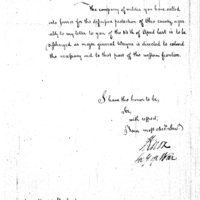 The company of militia you have called
into service for the defensive protection of this county, agree-
ably to my letter to you of the 10th of April last is to be
discharged as major general Wayne is directed to extend
his company and to that part of the western frontier.
I have the honor to be,
Sir,
with respect,
Your most obed. Servt
H Knox
Secy of War